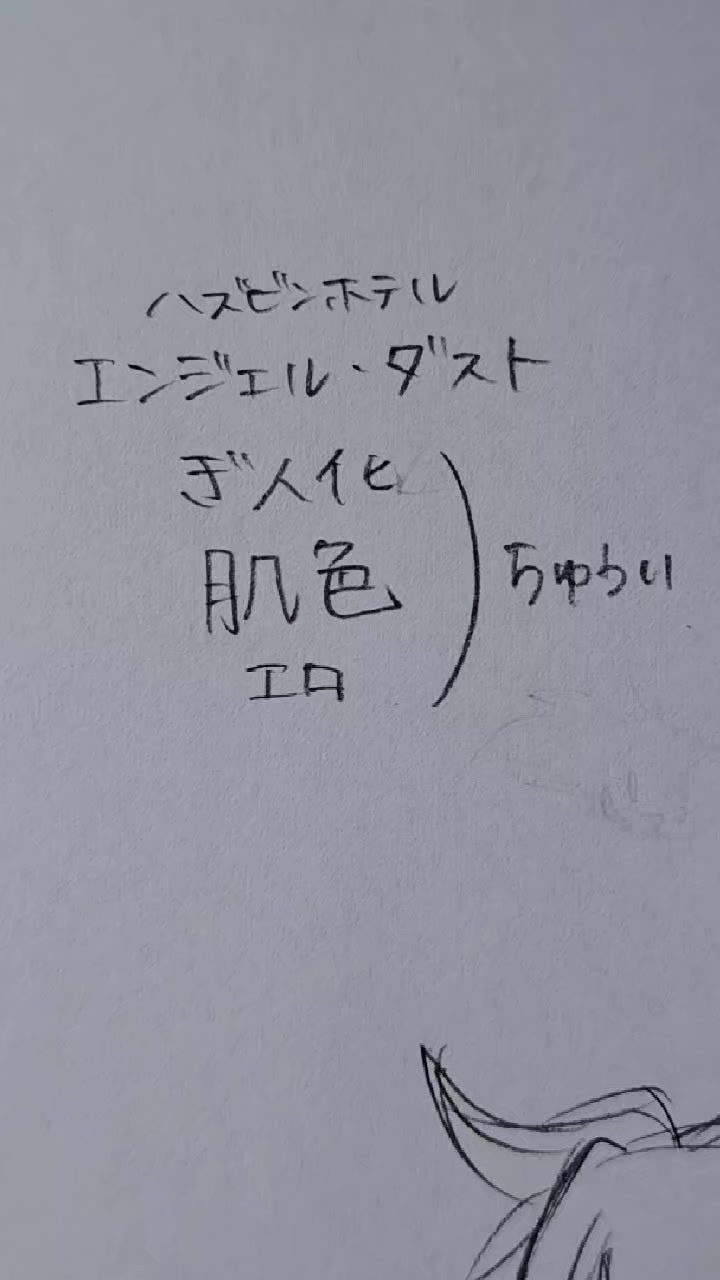 ハズビンホテル
エンジェル・ダスト
ぎ人化
肌色
エロ
ちゅうい